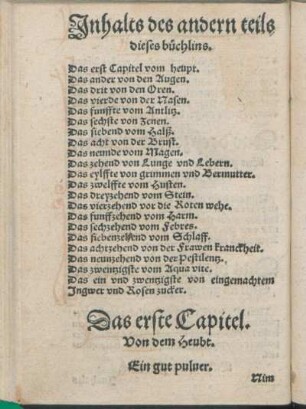 Inhalts des andern teils
dieses büchlins.
Das erst Capitel vom heupt.
Das ander von den Augen.
Das drit von den Oren.
Das vierde von der Nasen.
Das funffte vom Antlitz.
Das sechste von Zenen.
Das siebend vom Halß.
Das acht von der Brust.
Das neunde vom Magen.
Das zehend von Lunge vnd Lebern.
Das eylffte von grimmen vnd Bermutter.
Das zwelffte vom Husten.
Das dreyzehend vom Stein.
Das vierzehend vor die Roten wehe.
Das funffzehend vom Harm.
Das sechzehend vom Febres.
Das siebenzehend vom Schlaff.
Das achtzehend von der Frawen kranckheit.
Das neunzehend von der Pestilentz.
Das zwentzigste vom Aqua vite.
Das ein vnd zwentzigste von eingemachtem
Ingwer vnd Rosen zucker.
Das erste Capitel.
Von dem Heubt.
Ein gut puluer.
Nim